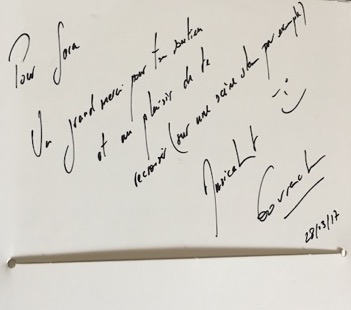 Pour Sara
Un grand merci pour ton soutien
et au plaisir de te
recroiser (sur une scène slam par exemple)
:-)
Amicalement
28/03/17